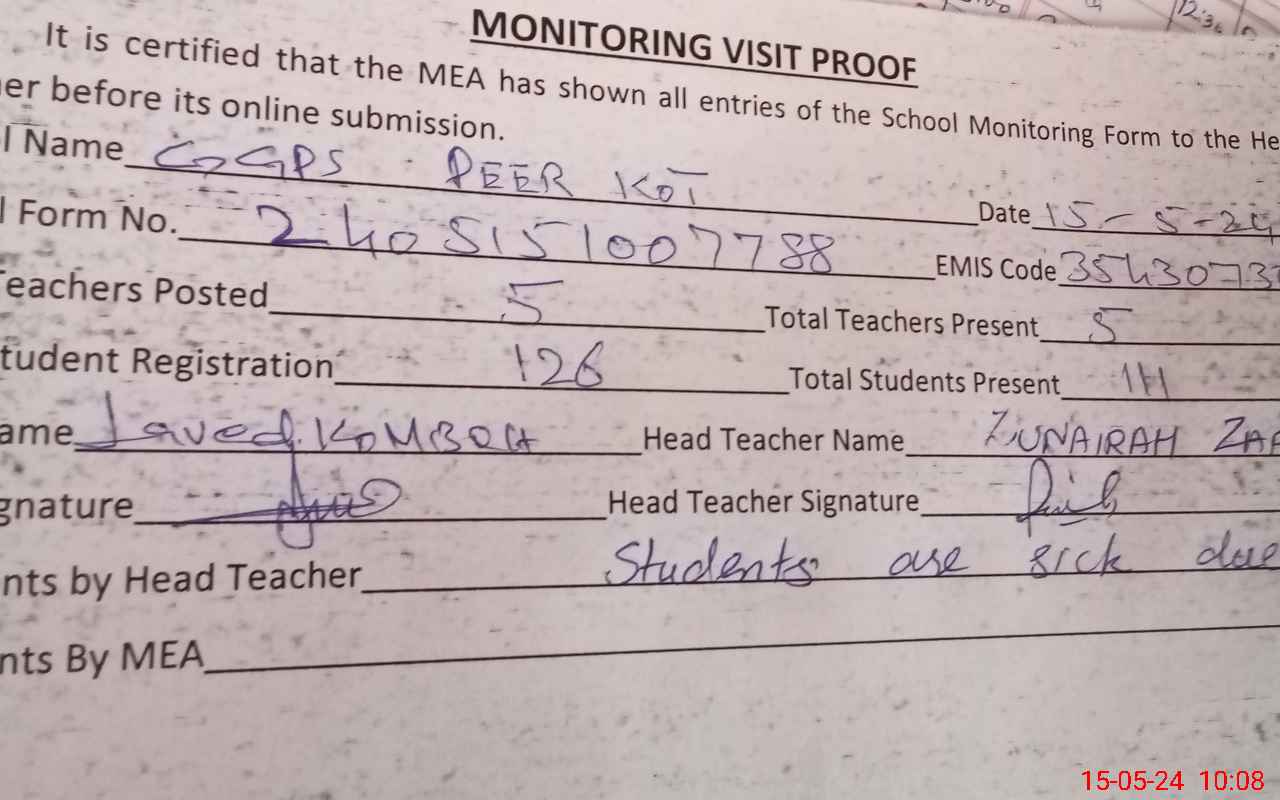 12:30
MONITORING VISIT PROOF
It is certified that the MEA has shown all entries of the School Monitoring Form to the He
er before its online submission.
l Name GGPS PEER KOT Date 15-5-24
l Form No. 2405151007788 EMIS Code 3543073
Teachers Posted 5 Total Teachers Present 5
tudent Registration 126 Total Students Present 111
ame Javed KOMBOH Head Teacher Name ZUNAIRAH ZAF
gnature Head Teacher Signature
nts by Head Teacher Students are sick due
nts By MEA
15-05-24 10:08